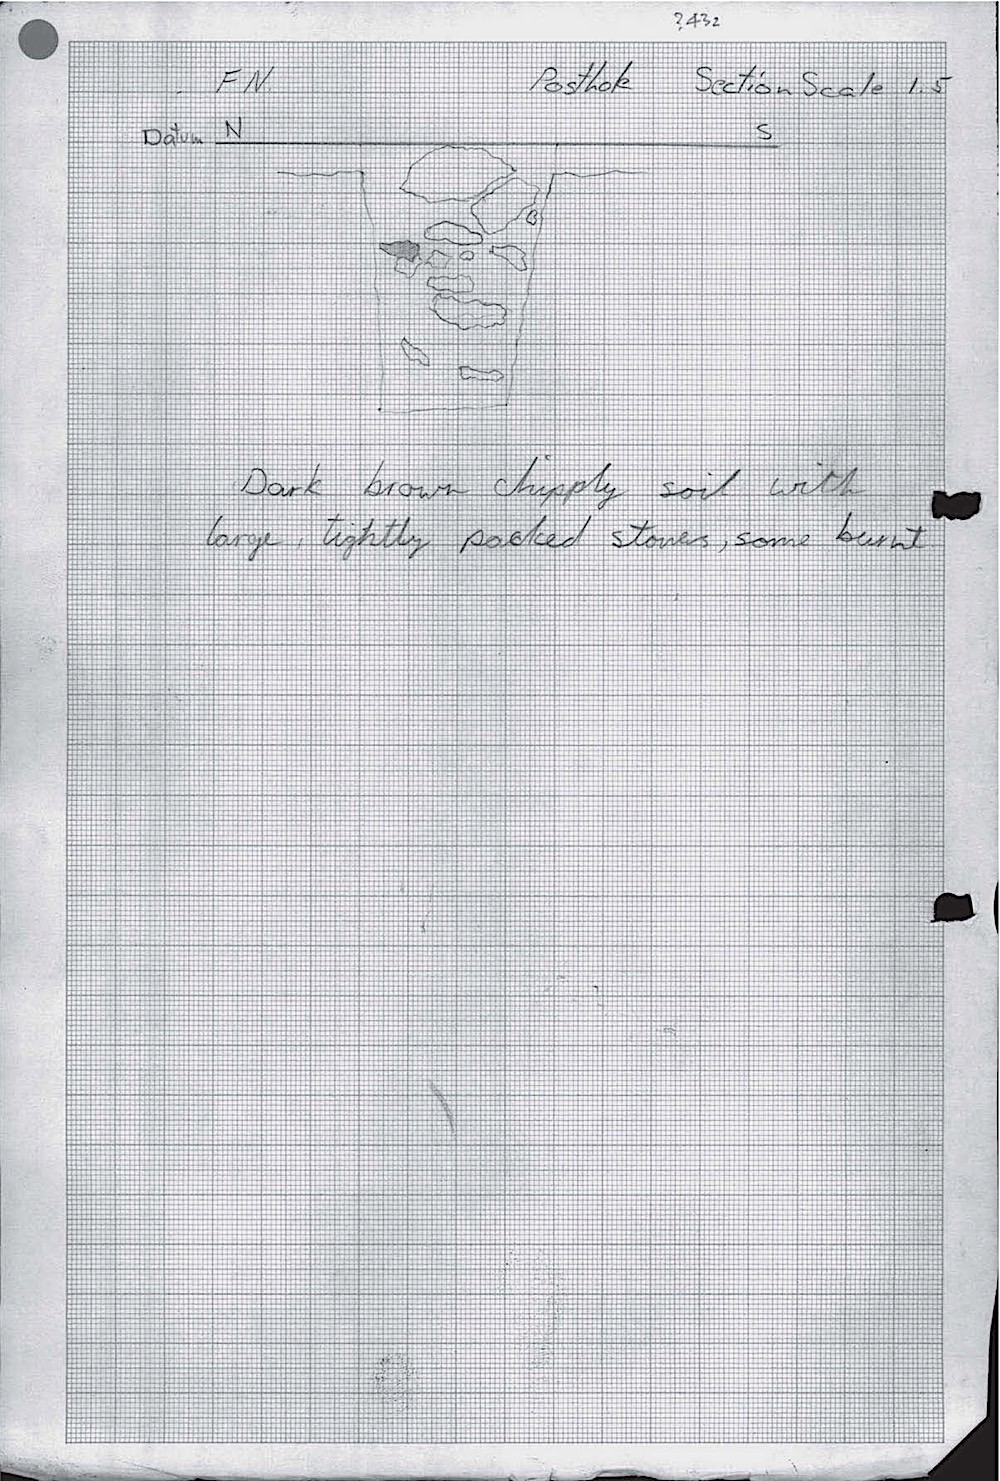 ?432
FN Posthole Section Scale 1.5
Datum N S
Dark brown chipply soil with
large, tightly packed stones, some burnt.